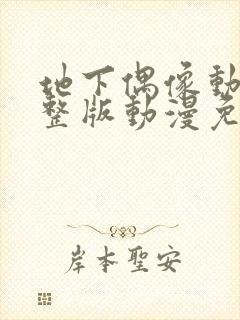 地下偶像動
整版動漫免
岸本聖安